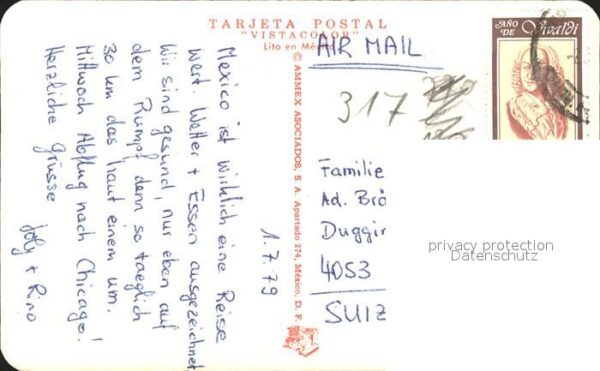 TARJETA POSTAL
"VISTACOLOR"
Lito en México
© AMMEX ASOCIADOS, S. A. Apartado 274, México, D. F.
1.7.79
Mexico ist wirklich eine Reise
wert. Wetter + Essen ausgezeichnet
Wir sind gesund, nur eben auf
dem Rumpf denn so taeglich
30 km das haut einem um.
Mittwoch Abflug nach Chicago!
Herzliche Grüsse
Joly + Rino
AÑO DE Vivaldi
AIR MAIL
317
Familie
Ad. Brö
Duggin
4053
SUIZ
privacy protection
Datenschutz